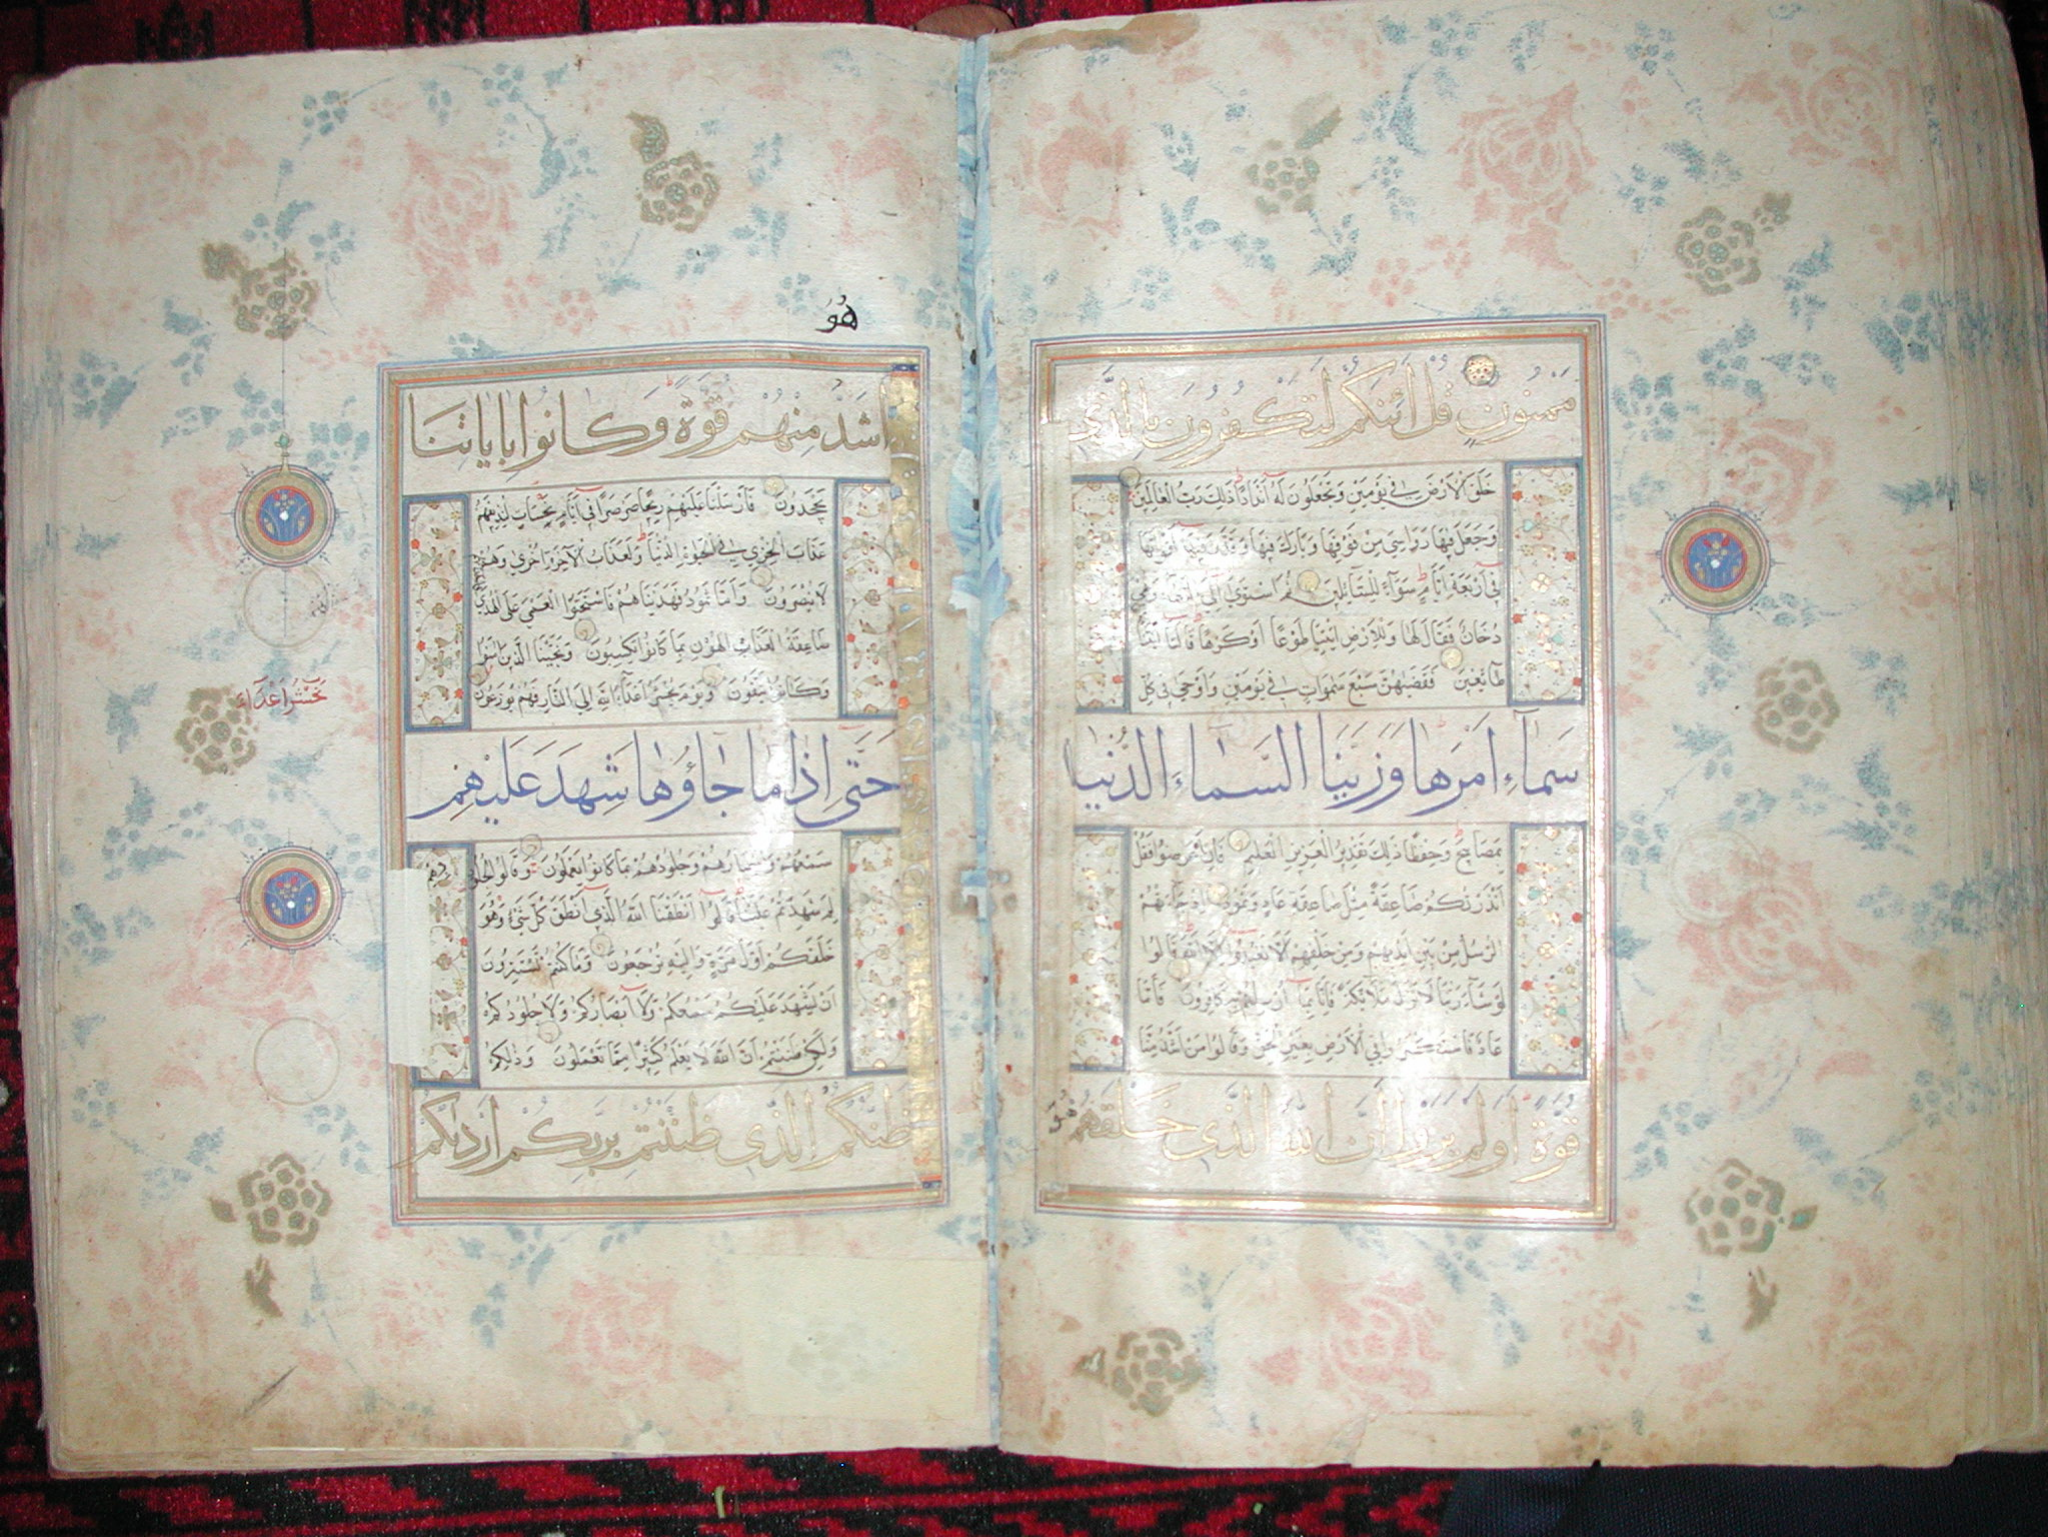 مَمْنُونٍ قُلْ أَئِنَّكُمْ لَتَكْفُرُونَ بِالَّذِي
خَلَقَ الْأَرْضَ فِي يَوْمَيْنِ وَتَجْعَلُونَ لَهُ أَنْدَادًا ذَلِكَ رَبُّ الْعَالَمِينَ
وَجَعَلَ فِيهَا رَوَاسِيَ مِنْ فَوْقِهَا وَبَارَكَ فِيهَا وَقَدَّرَ فِيهَا أَقْوَاتَهَا
فِي أَرْبَعَةِ أَيَّامٍ سَوَاءً لِلسَّائِلِينَ ثُمَّ اسْتَوَى إِلَى السَّمَاءِ وَهِيَ
دُخَانٌ فَقَالَ لَهَا وَلِلْأَرْضِ ائْتِيَا طَوْعًا أَوْ كَرْهًا قَالَتَا أَتَيْنَا
طَائِعِينَ فَقَضَيهُنَّ سَبْعَ سَمَوَاتٍ فِي يَوْمَيْنِ وَأَوْحَى فِي كُلِّ
سَمَاءٍ أَمْرَهَا وَزَيَّنَّا السَّمَاءَ الدُّنْيَا
بِمَصَابِيحَ وَحِفْظًا ذَلِكَ تَقْدِيرُ الْعَزِيزِ الْعَلِيمِ فَإِنْ أَعْرَضُوا فَقُلْ
أَنْذَرْتُكُمْ صَاعِقَةً مِثْلَ صَاعِقَةِ عَادٍ وَثَمُودَ إِذْ جَاءَتْهُمُ
الرُّسُلُ مِنْ بَيْنِ أَيْدِيهِمْ وَمِنْ خَلْفِهِمْ أَلَّا تَعْبُدُوا إِلَّا اللَّهَ قَالُوا
لَوْ شَاءَ رَبُّنَا لَأَنْزَلَ مَلَائِكَةً فَإِنَّا بِمَا أُرْسِلْتُمْ بِهِ كَافِرُونَ فَأَمَّا
عَادٌ فَاسْتَكْبَرُوا فِي الْأَرْضِ بِغَيْرِ الْحَقِّ وَقَالُوا مَنْ أَشَدُّ مِنَّا
قُوَّةً أَوَلَمْ يَرَوْا أَنَّ اللَّهَ الَّذِي خَلَقَهُمْ
هُوَ
هُوَ
أَشَدُّ مِنْهُمْ قُوَّةً وَكَانُوا بِايَاتِنَا
يَجْحَدُونَ فَأَرْسَلْنَا عَلَيْهِمْ رِيحًا صَرْصَرًا فِي أَيَّامٍ نَحِسَاتٍ لِنُذِيقَهُمْ
عَذَابَ الْخِزْيِ فِي الْحَيَوةِ الدُّنْيَا وَلَعَذَابُ الْآخِرَةِ أَخْزَى وَهُمْ
لَا يُنْصَرُونَ وَأَمَّا ثَمُودُ فَهَدَيْنَاهُمْ فَاسْتَحَبُّوا الْعَمَى عَلَى الْهُدَى
صَاعِقَةُ الْعَذَابِ الْهُونِ بِمَا كَانُوا يَكْسِبُونَ وَنَجَّيْنَا الَّذِينَ امَنُوا
وَكَانُوا يَتَّقُونَ وَيَوْمَ يُحْشَرُ أَعْدَاءُ اللَّهِ إِلَى النَّارِ فَهُمْ يُوزَعُونَ
نَحْشُرُ أَعْدَاءَ
حَتَّى إِذَا مَا جَاؤُهَا شَهِدَ عَلَيْهِمْ
سَمْعُهُمْ وَأَبْصَارُهُمْ وَجُلُودُهُمْ بِمَا كَانُوا يَعْمَلُونَ وَقَالُوا لِجُلُودِهِمْ
لِمَ شَهِدْتُمْ عَلَيْنَا قَالُوا أَنْطَقَنَا اللَّهُ الَّذِي أَنْطَقَ كُلَّ شَيْءٍ وَهُوَ
خَلَقَكُمْ أَوَّلَ مَرَّةٍ وَإِلَيْهِ تُرْجَعُونَ وَمَا كُنْتُمْ تَسْتَتِرُونَ
أَنْ يَشْهَدَ عَلَيْكُمْ سَمْعُكُمْ وَلَا أَبْصَارُكُمْ وَلَا جُلُودُكُمْ
وَلَكِنْ ظَنَنْتُمْ أَنَّ اللَّهَ لَا يَعْلَمُ كَثِيرًا مِمَّا تَعْمَلُونَ وَذَلِكُمْ
ظَنُّكُمُ الَّذِي ظَنَنْتُمْ بِرَبِّكُمْ أَرْدَيكُمْ